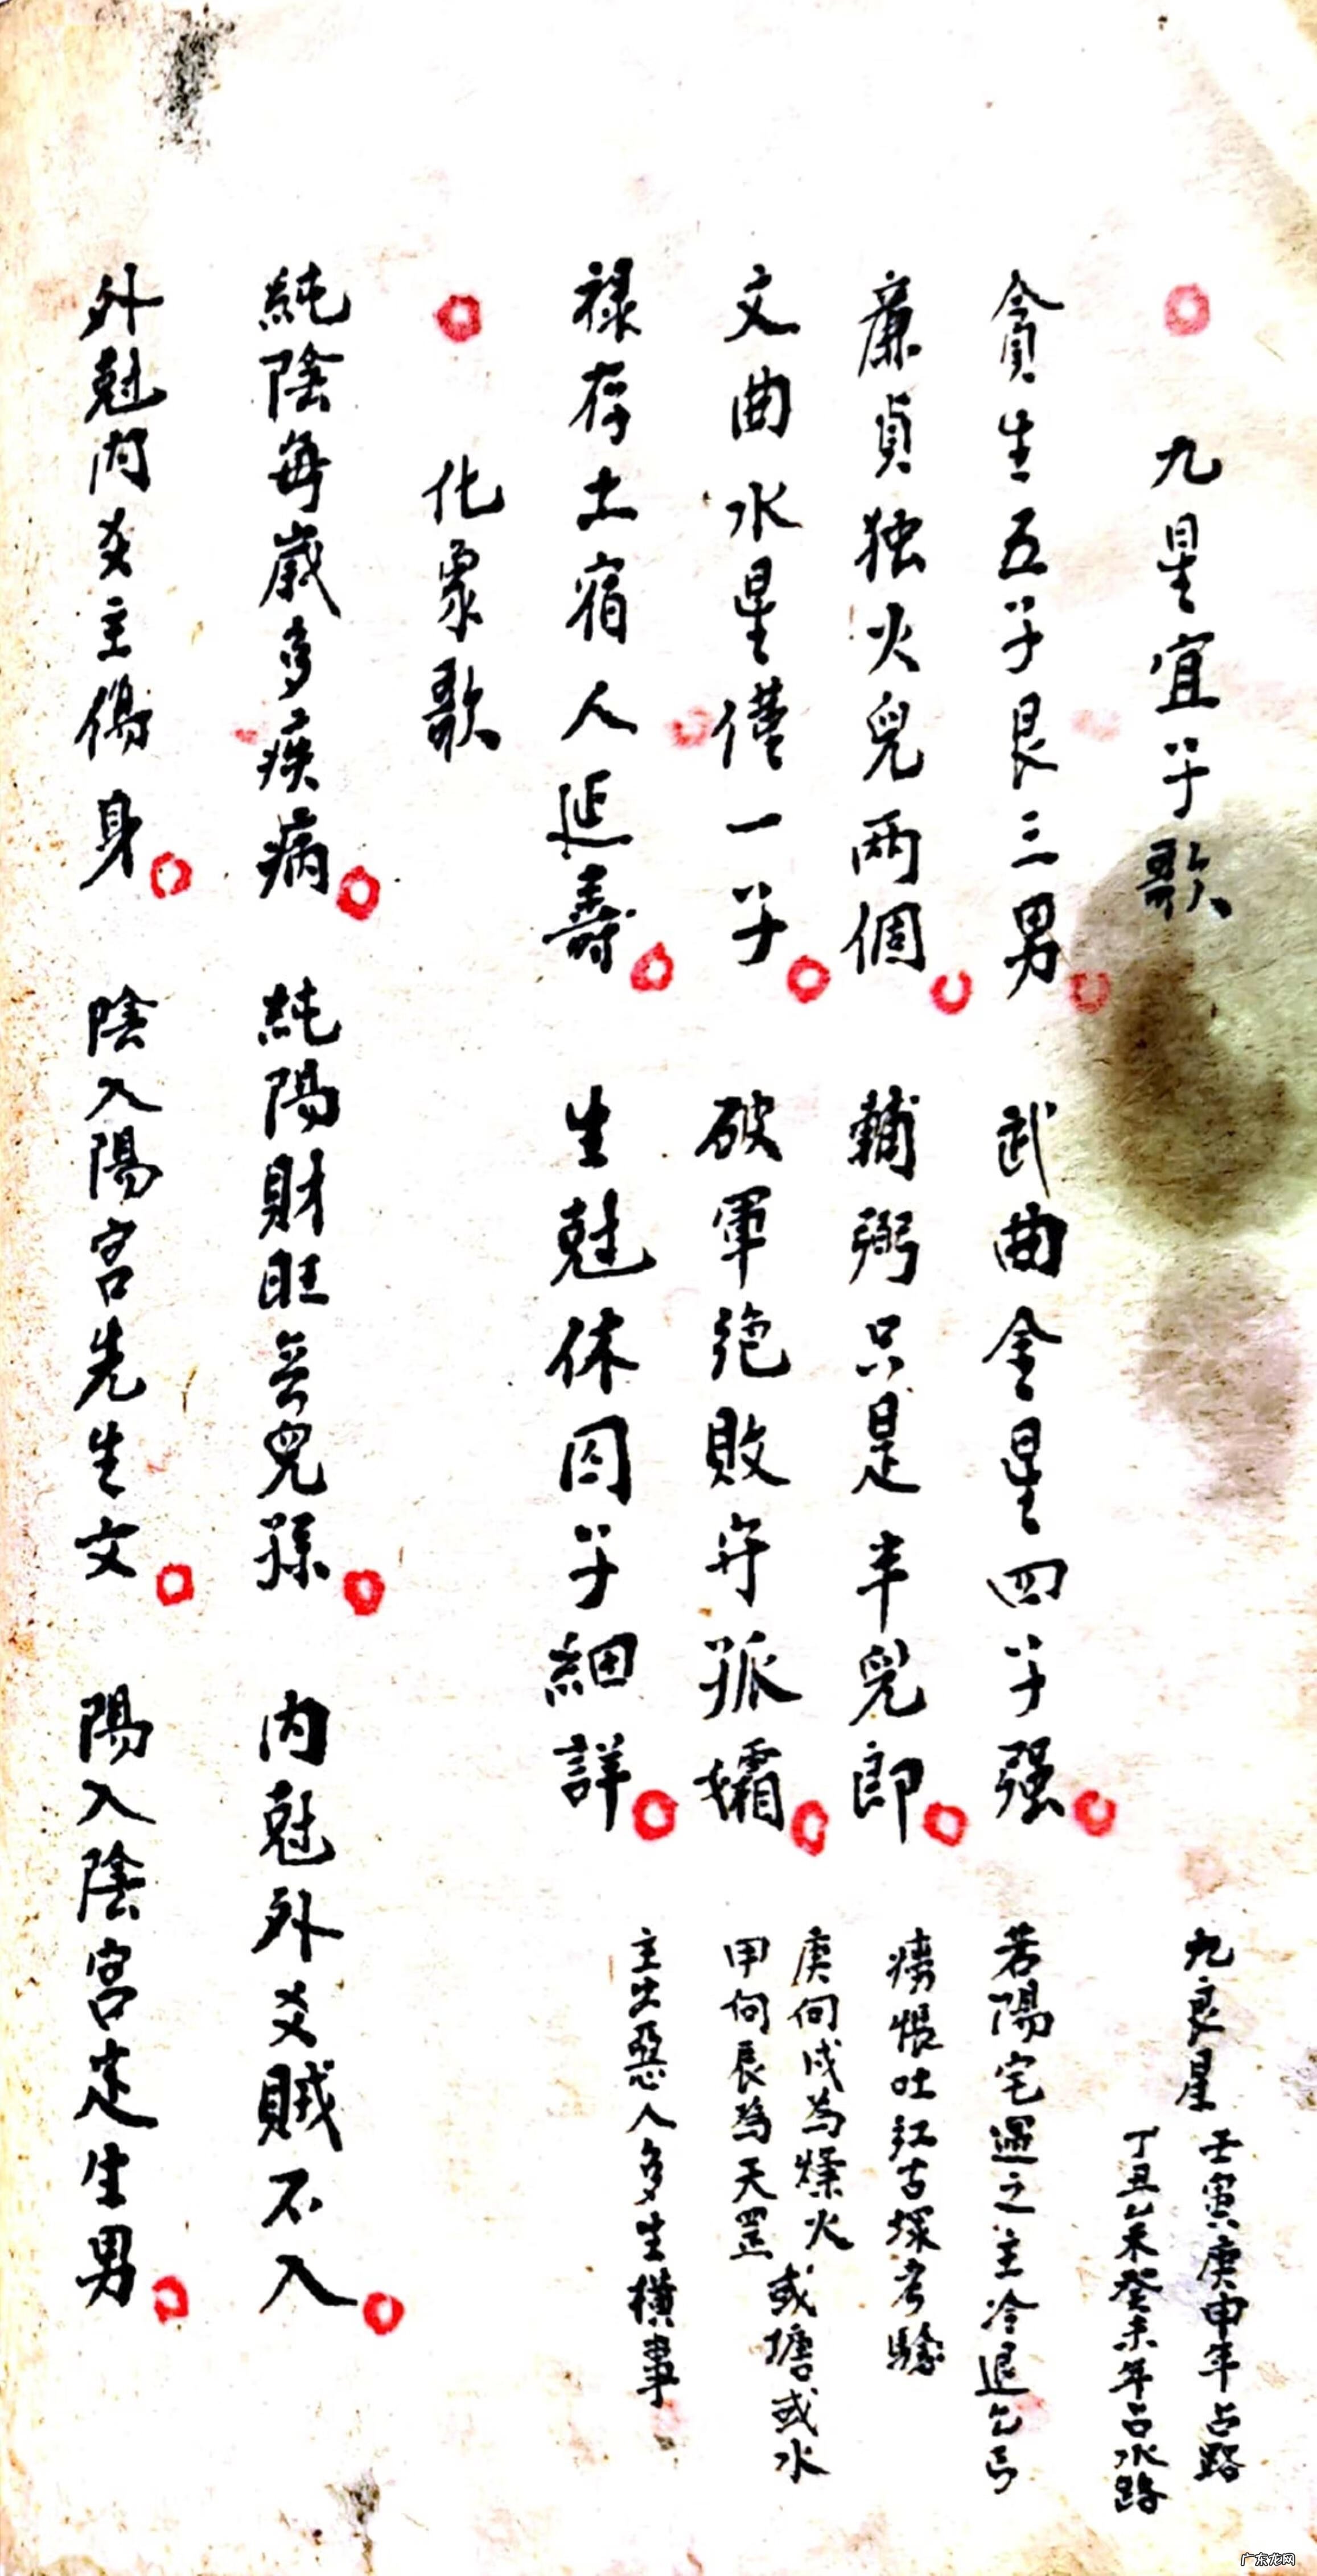 九星宜子歌
貪生五子艮三男
武曲金星四子强
廉貞独火兒兩個
輔弼只是半兒郎
文曲水星僅一子
破軍絶敗守孤孀
禄存土宿人延壽
生尅休囚子細詳
化象歌
純陰每歲多疾病
純陽財旺無兒孫
内尅外爻賊不入
外尅内爻主傷身
陰入陽宫先生女
陽入陰宫定生男
九良星
壬寅庚申年占路
丁丑乙未癸未年占水路
若陽宅遇之主冷退乞丐
癆 吐紅古塚考驗
庚向戌為燥火
甲向辰為天罡
或塘或水
主出惡人多生横事
广东龙网